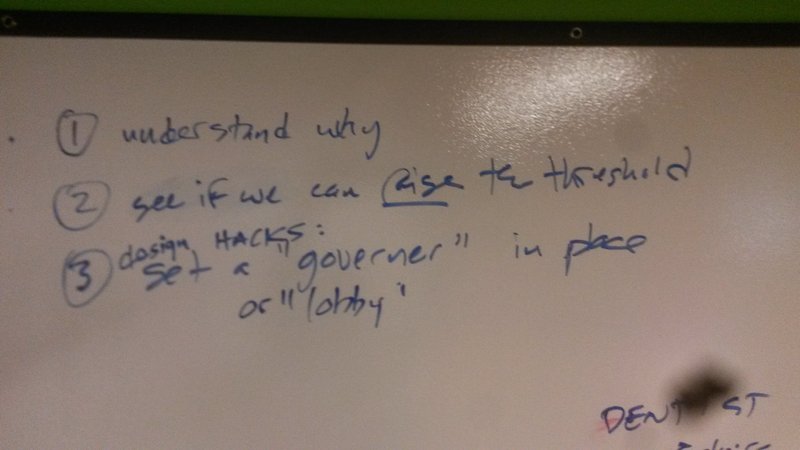 1 understand why
2 see if we can raise the threshold
design HACKS:
3 set a "governer" in place
or "lobby"
DENTIST